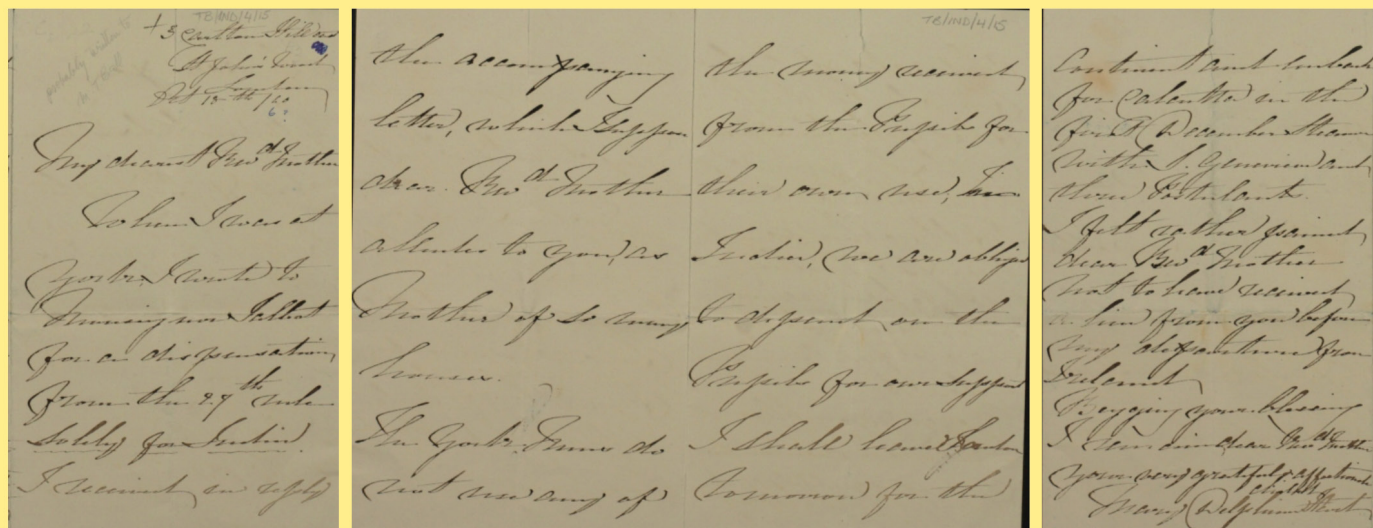 TB/IND/4/15
probably written
+ 3 Carlton Hill
St John's Wood
London
Oct 12th /60
6?
My dearest Revd Mother
When I was at
York I wrote to
Monsignor Talbot
for a dispensation
from the 27th rule
solely for India.
I received in reply
TB/IND/4/15
the accompanying
letter, which I suppose
dear Revd Mother
alludes to you, as
Mother of so many
houses.
The York Nuns do
not use any of
the money received
from the Pupils for
their own use, in
India, we are obliged
to depend on the
Pupils for our support
I shall leave London
tomorrow for the
Continent and embark
for Calcutta in the
first December Steamer
with S. Genevieve and
three Postulants.
I felt rather pained
dear Revd Mother
not to have received
a line from you before
my departure from
Ireland
Begging your blessing
I remain dear Revd Mother
your very grateful & affectionate
child
Mary Delphine Hart